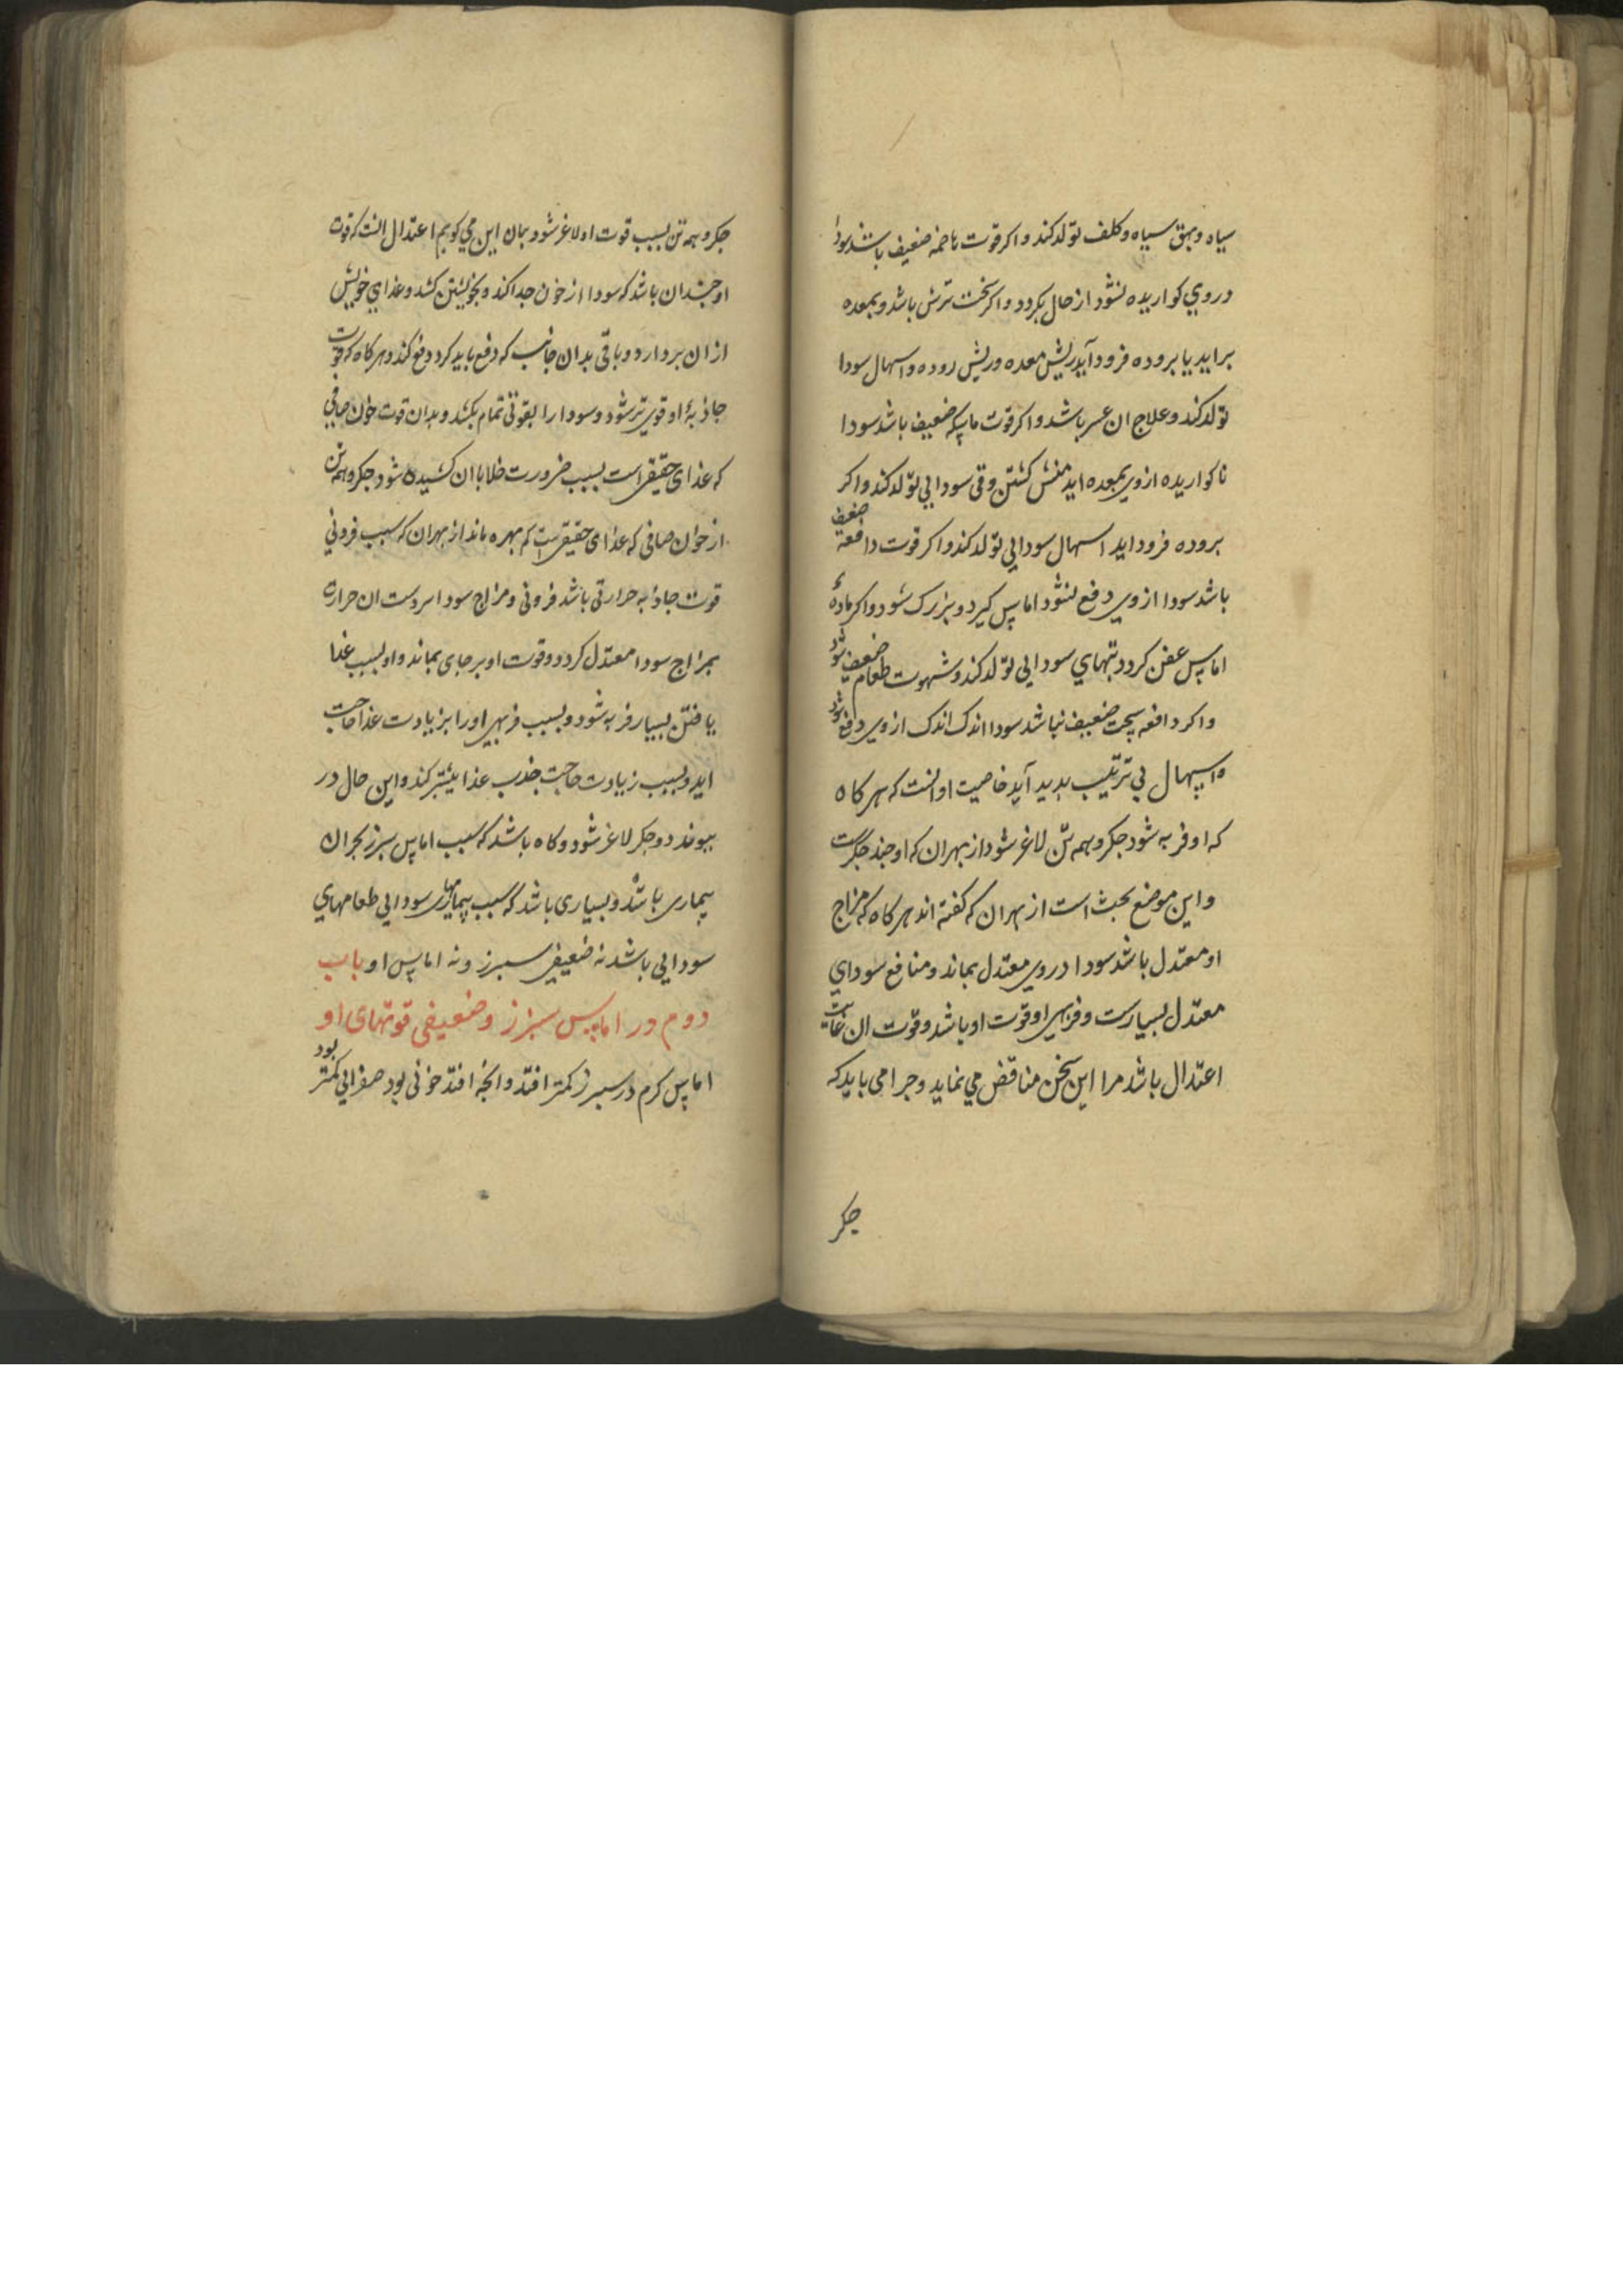 سیاه وبهق سیاه وکلف تولد کند واکر قوت هاضمه ضعیف باشد سودا
دروي کواریده نشود از حال بکردد واکر سخت ترش باشد وبمعده
براید یا بروده فرود آید ریش معده وریش روده واسهال سودا
تولد کند وعلاج ان عسر باشد واکر قوت ماسکه ضعیف باشد سودا
ناکواریده ازوي بمعده اید منش کشتن وقی سودایي تولد کند واکر
بروده فرود اید اسهال سودایي تولد کند واکر قوت دافعه ضعیف
باشد سودا ازوي دفع نشود اماس کیرد وبزرک شود واکر مادهٔ
اماس عفن کردد تبهاي سودایي تولد کند وشهوت طعام ضعیف شود
واکر دافعه سخت ضعیف نباشد سودا اندک اندک ازوي دفع شود
واسهال بي ترتیب بدید آید خاصیت او انست که هر کاه
که او فربه شود جکر وهمه تن لاغر شود از بهر ان که او ضد جکرست
واین موضع بحث است از بهر ان که کفته اند هر کاه که مزاج
او معتدل باشد سودا دروي معتدل بماند ومنافع سوداي
معتدل بسیارست وفربهي او قوت او باشد وقوت ان غایت
اعتدال باشد مرا این سخن مناقض مي نماید وجرا مي باید که
جکر
جکر وهمه تن بسبب قوت او لاغر شود بمان این مي کویم اعتدال انست که قوت
او جندان باشد که سودا از خون جدا کند وبخویشتن کشد وغذاي خویش
از ان بردارد وباقی بدان جانب که دفع باید کرد دفع کند وهر کاه که قوت
جاذبهٔ او قوي تر شود وسودا را بقوتی تمام بکشد وبدان قوت خون صافي
که غذاي حقیقي است بسبب ضرورت خلا با ان کشیده شود جکر وهمه تن
از خون صافي که غذاي حقیقي است کم بهره ماند از بهر ان که سبب فزوني
قوت جاذبه حرارتی باشد فزونی ومزاج سودا سردست ان حرارت
بمزاج سودا معتدل کردد وقوت او برجاي بماند واو بسبب غذا
یافتن بسیار فربه شود وبسبب فربهي اورا بزیادت غذا حاجت
اید وبسبب زیادت حاجت جذب غذا بیشتر کند واین حال در
بیوندد وجکر لاغر شود وکاه باشد که سبب اماس سبرز بحران
بیماري باشد وبسیاري باشد که سبب بیماریهاي سودایي طعامهاي
سودایي باشد نه ضعیفي سبرز ونه اماس او باب
دوم در اماس سبرز وضعیفي قوتهاي او
اماس کرم در سبرز کمتر افتد وانجه افتد خونی بود صفرایي کمتر بود